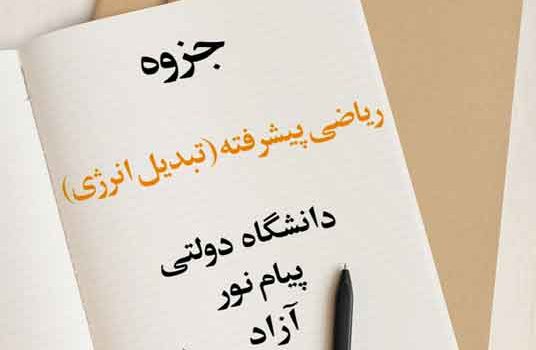 جزوه
ریاضی پیشرفته (تبدیل انرژی)
دانشگاه دولتی
پیام نور
آزاد